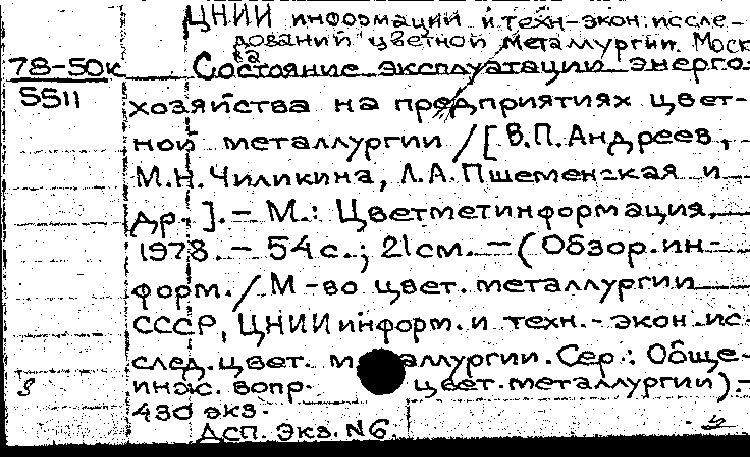 ЦНИИ информации и техн-экон. иссле-
дований цветной металлургии. Моск
ва
78-50к
5511
Состояние эксплуатации энерго-
хозяйства на предприятиях цвет-
ной металлургии / [В.П. Андреев,
М.Н. Чиликина, Л.А. Пшеменская и
др.]. - М.: Цветметинформация,
1978. - 54 с.; 21 см. - (Обзор. ин-
форм. / М-во цвет. металлургии
СССР, ЦНИИ информ. и техн.-экон. ис-
след. цвет. металлургии. Сер.: Обще-
инж. вопр. цвет. металлургии). -
430 экз.
ДСП. Экз. N6.